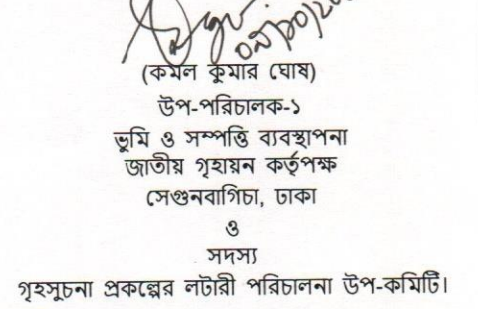 (কমল কুমার ঘোষ)
উপ-পরিচালক-১
ভুমি ও সম্পত্তি ব্যবস্থাপনা
জাতীয় গৃহায়ন কর্তৃপক্ষ
সেগুনবাগিচা, ঢাকা
ও
সদস্য
গৃহসুচনা প্রকল্পের লটারী পরিচালনা উপ-কমিটি।